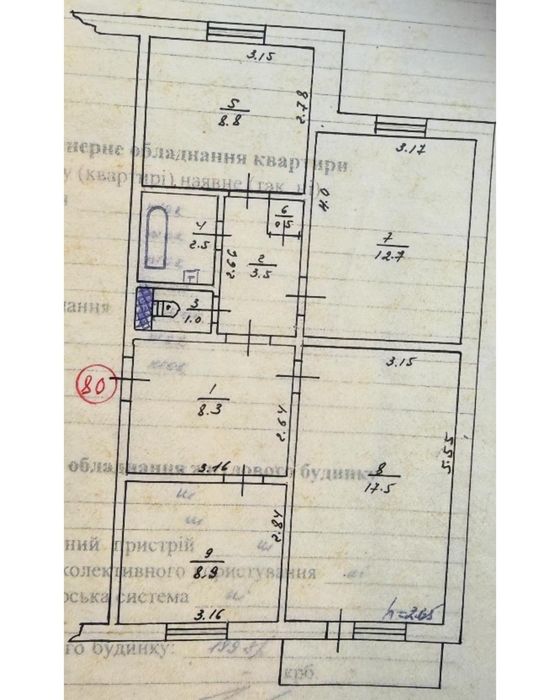 3.15
5
8.8
2.78
нерне обладнання квартири
у (квартирі) наявне (так, ні)
3.17
4.0
6
0.5
7
12.7
4
2.5
2
3.5
2.66
Т
3
1.0
нання
3.15
80
1
8.3
2.64
5.55
3.16
обладнання
дового будинк
8
17.5
2.84
ний пристрій
9
8.9
колективного
ристування
рська система
h=2.65
3.16
го будинку:
крб